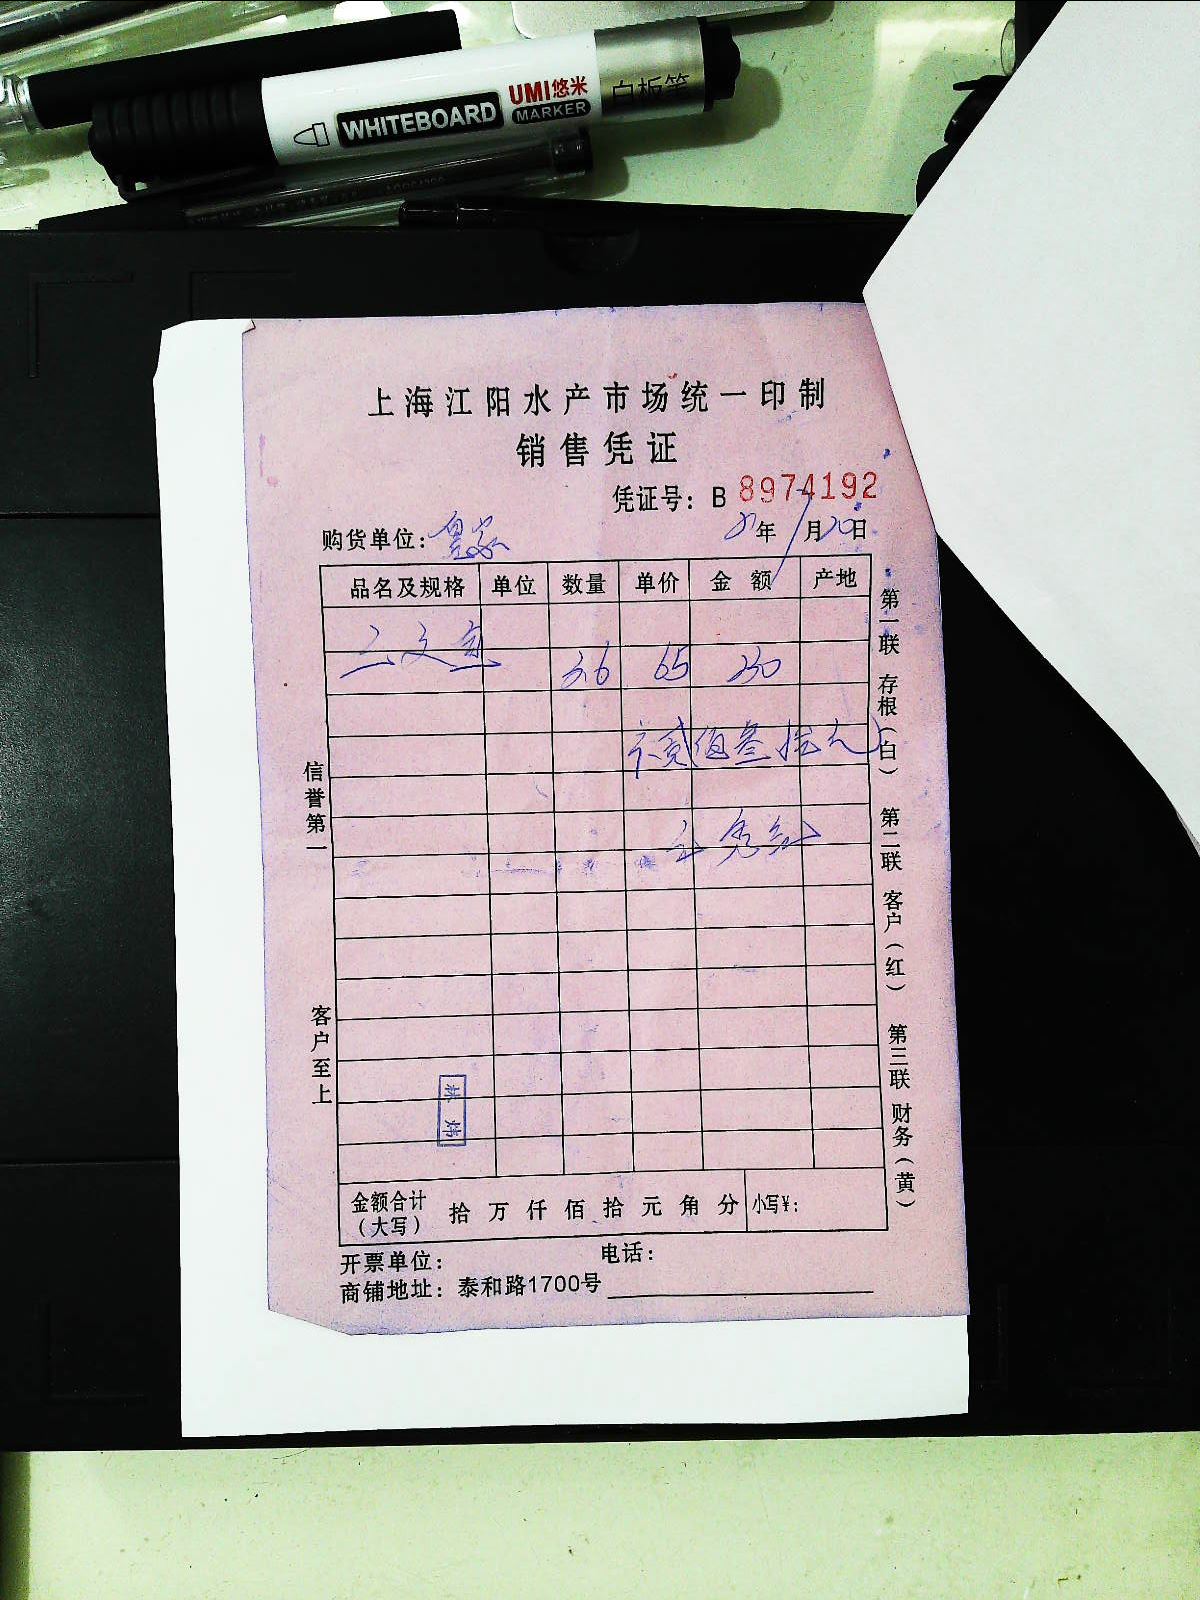 WHITEBOARD UMI悠米 MARKER 白板笔
上海江阳水产市场统一印制
销售凭证
凭证号: B 8974192
购货单位: 皇家 年 月 20日
品名及规格 单位 数量 单价 金额 产地
三文鱼 3.6 65 230
贰佰叁拾元
第一联 存根(白) 第二联 客户(红) 第三联 财务(黄)
信誉第一
客户至上
金额合计(大写) 拾 万 仟 佰 拾 元 角 分 小写¥:
开票单位: 电话:
商铺地址: 泰和路1700号